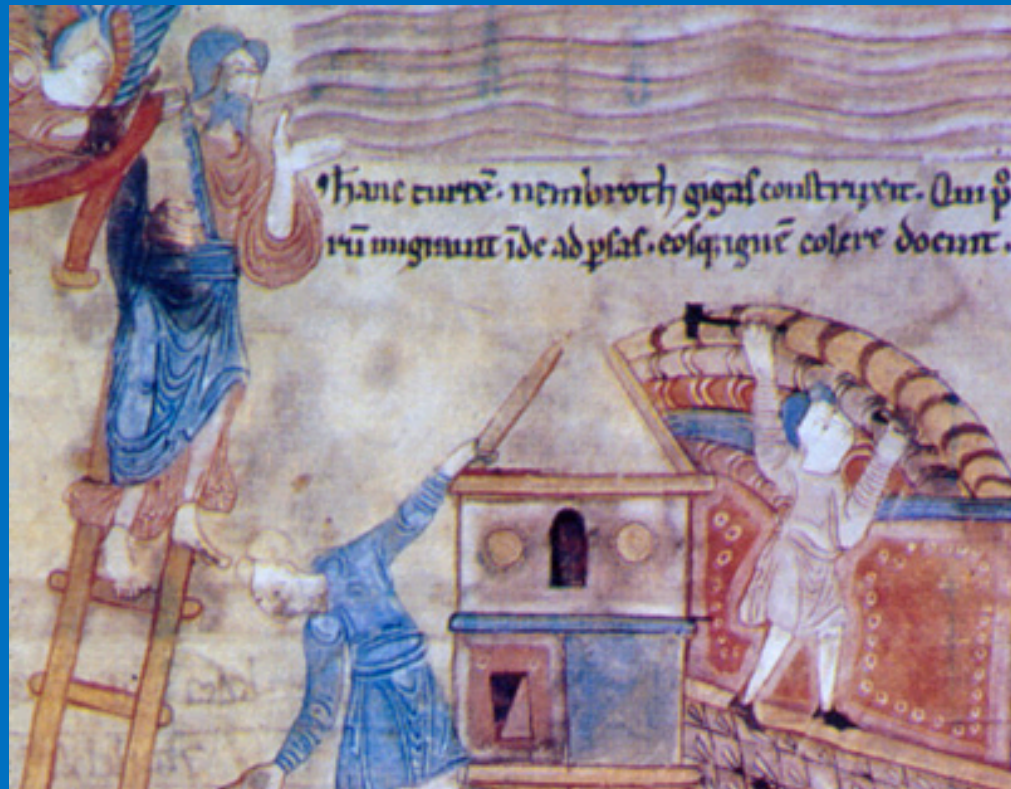 hanc turrē. nembroth gigas construxit. Qui p᷒
rū migrauit īde ad ꝑsas. eosq; ignē colere docuit.